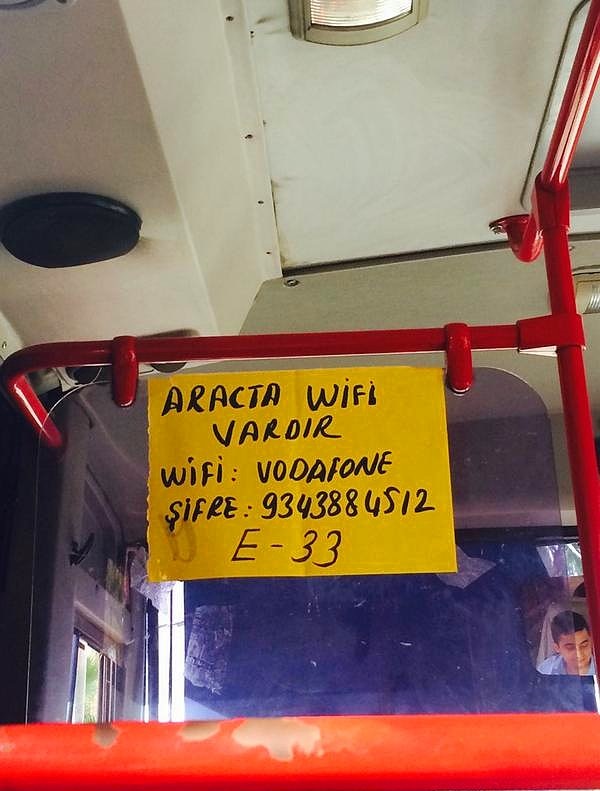 ARAÇTA WiFi
VARDIR
WiFi: VODAFONE
ŞiFRE: 9343884512
E-33